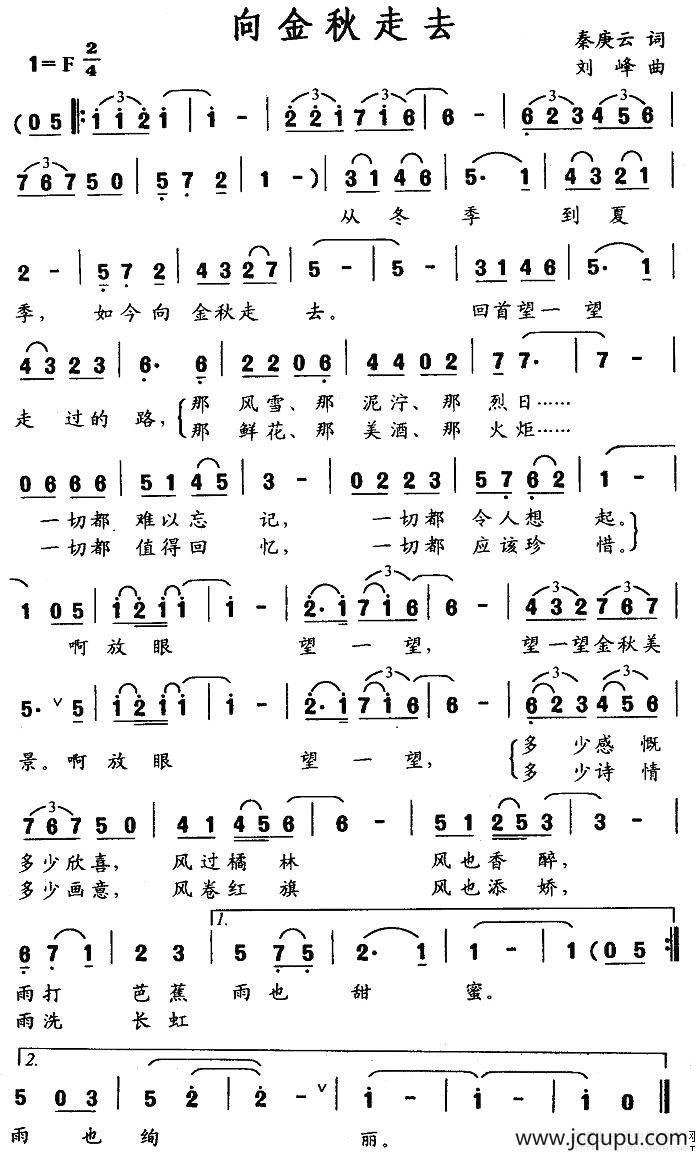 向金秋走去
秦庚云 词
1=F 2/4
刘峰 曲
(0 5 ‖: 1 1 2 1 | 1 - | 2 2 1 7 1 6 | 6 - | 6 2 3 4 5 6 |
7 6 7 5 0 | 5 7 2 | 1 - ) | 3 1 4 6 | 5· 1 | 4 3 2 1 |
从冬季到夏
2 - | 5 7 2 | 4 3 2 7 | 5 - | 5 - | 3 1 4 6 | 5· 1 |
季，如今向金秋走去。回首望一望
4 3 2 3 | 6· 6 | 2 2 0 6 | 4 4 0 2 | 7 7· | 7 - |
走过的路，那风雪、那泥泞、那烈日……
那鲜花、那美酒、那火炬……
0 6 6 6 | 5 1 4 5 | 3 - | 0 2 2 3 | 5 7 6 2 | 1 - |
一切都难以忘记，一切都令人想起。
一切都值得回忆，一切都应该珍惜。
1 0 5 | 1 2 1 1 | 1 - | 2· 1 7 1 6 | 6 - | 4 3 2 7 6 7 |
啊放眼望一望，望一望金秋美
5· ∨ 5 | 1 2 1 1 | 1 - | 2· 1 7 1 6 | 6 - | 6 2 3 4 5 6 |
景。啊放眼望一望，多少感慨
多少诗情
7 6 7 5 0 | 4 1 4 5 6 | 6 - | 5 1 2 5 3 | 3 - |
多少欣喜，风过橘林风也香醉，
多少画意，风卷红旗风也添娇，
1.
6 7 1 | 2 3 | 5 7 5 | 2· 1 | 1 - | 1 (0 5 :‖
雨打芭蕉雨也甜蜜。
雨洗长虹
2.
5 0 3 | 5 2 | 2 - ∨ | 1 - | 1 - | 1 0 ‖
雨也绚丽。
www.jcqupu.com